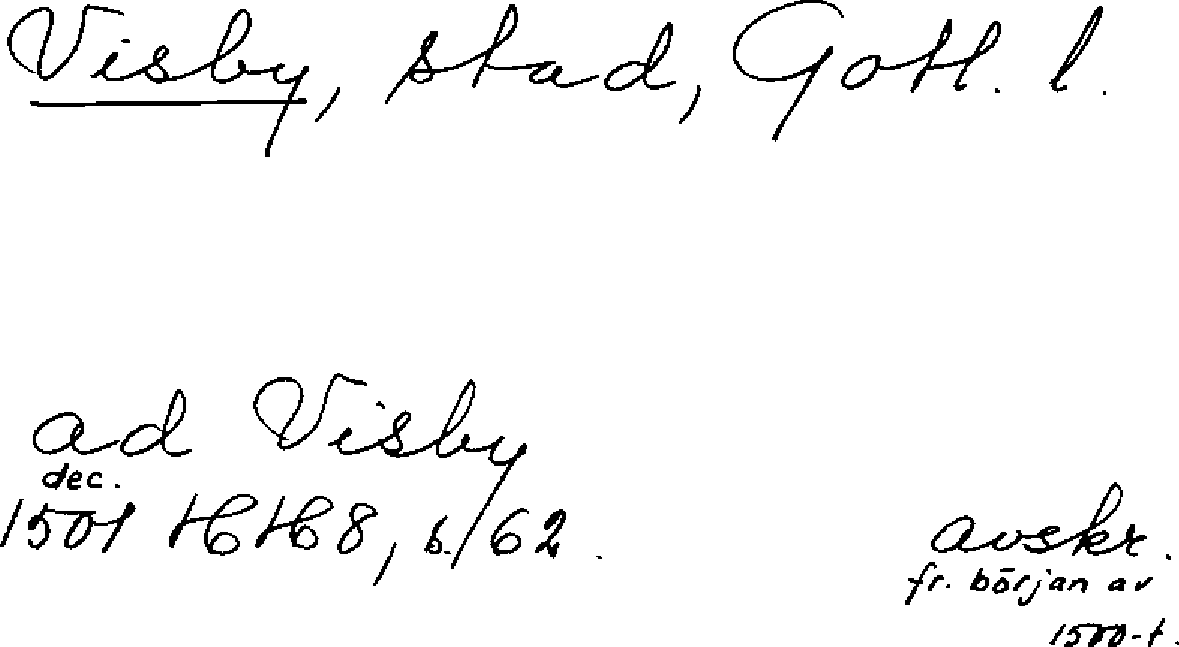 Visby, stad, Gotl. l.
ad Visby
dec.
1501 HH 8, s. 62.
avskr.
fr. början av
1500-t.